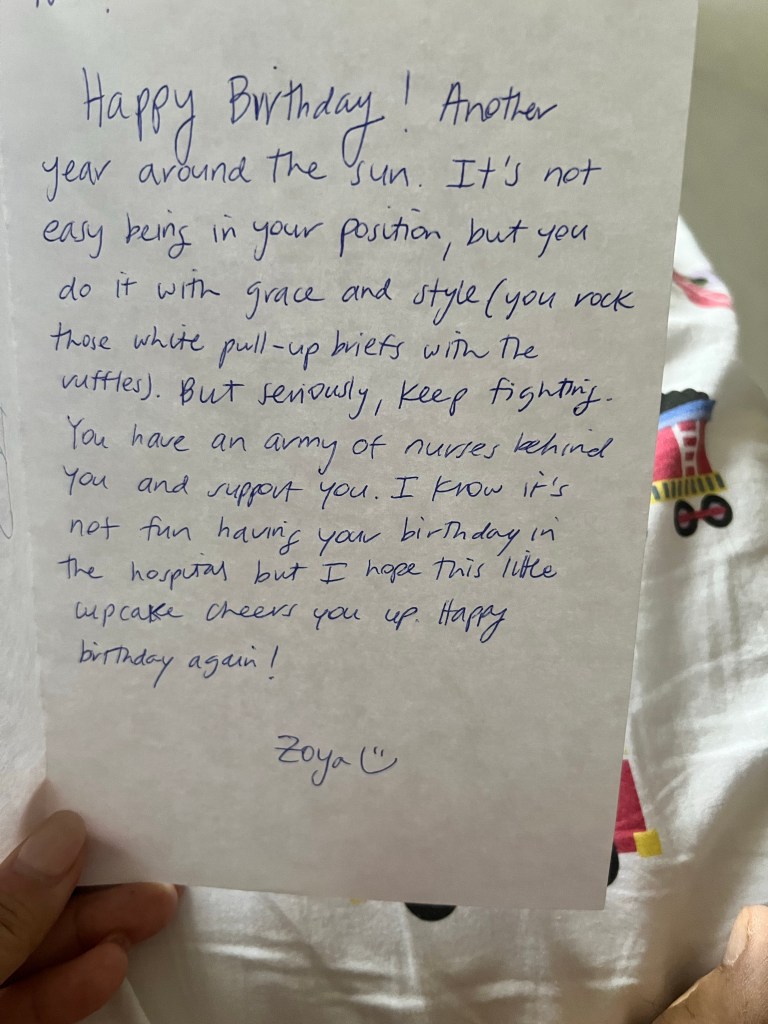 Happy Birthday! Another
year around the sun. It's not
easy being in your position, but you
do it with grace and style (you rock
those white pull-up briefs with the
ruffles). But seriously, keep fighting.
You have an army of nurses behind
you and support you. I know it's
not fun having your birthday in
the hospital but I hope this little
cupcake cheers you up. Happy
birthday again!
Zoya